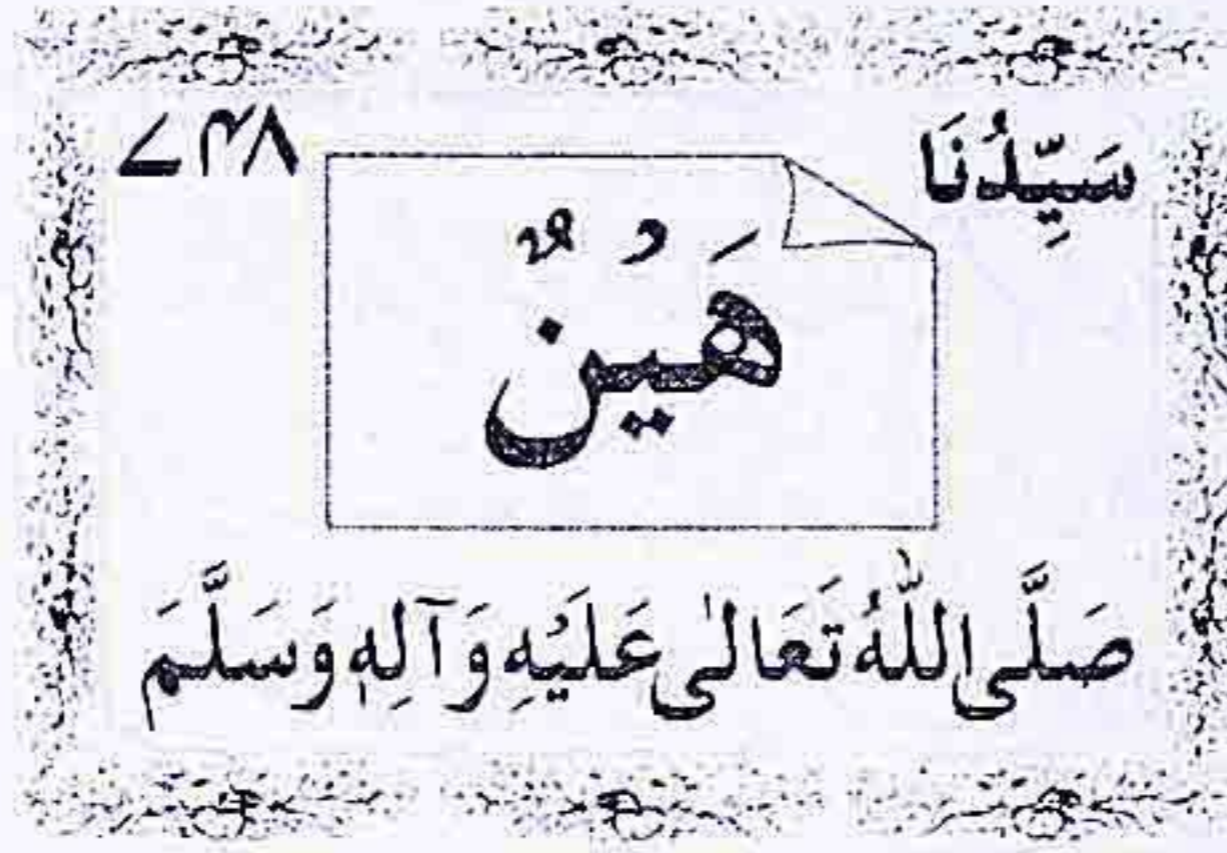 سَيِّدُنَا
۷۴۸
هَيْنٌ
صَلَّى اللّٰهُ تَعَالٰى عَلَيْهِ وَآلِهٖ وَسَلَّمَ